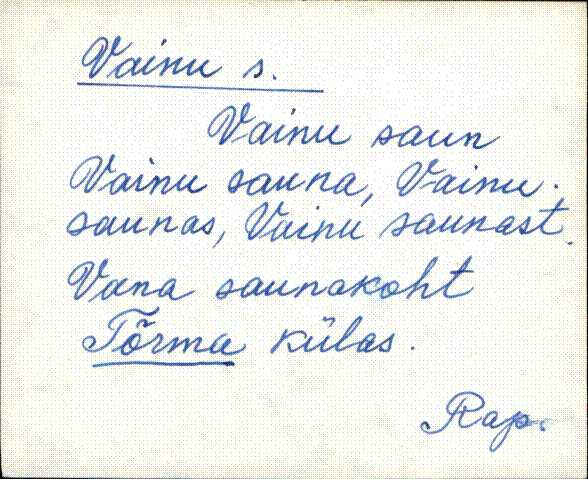 Vainu s.
Vainu saun
Vainu sauna, Vainu
saunas, Vainu saunast.
Vana saunakoht
Tõrma külas.
Rap.